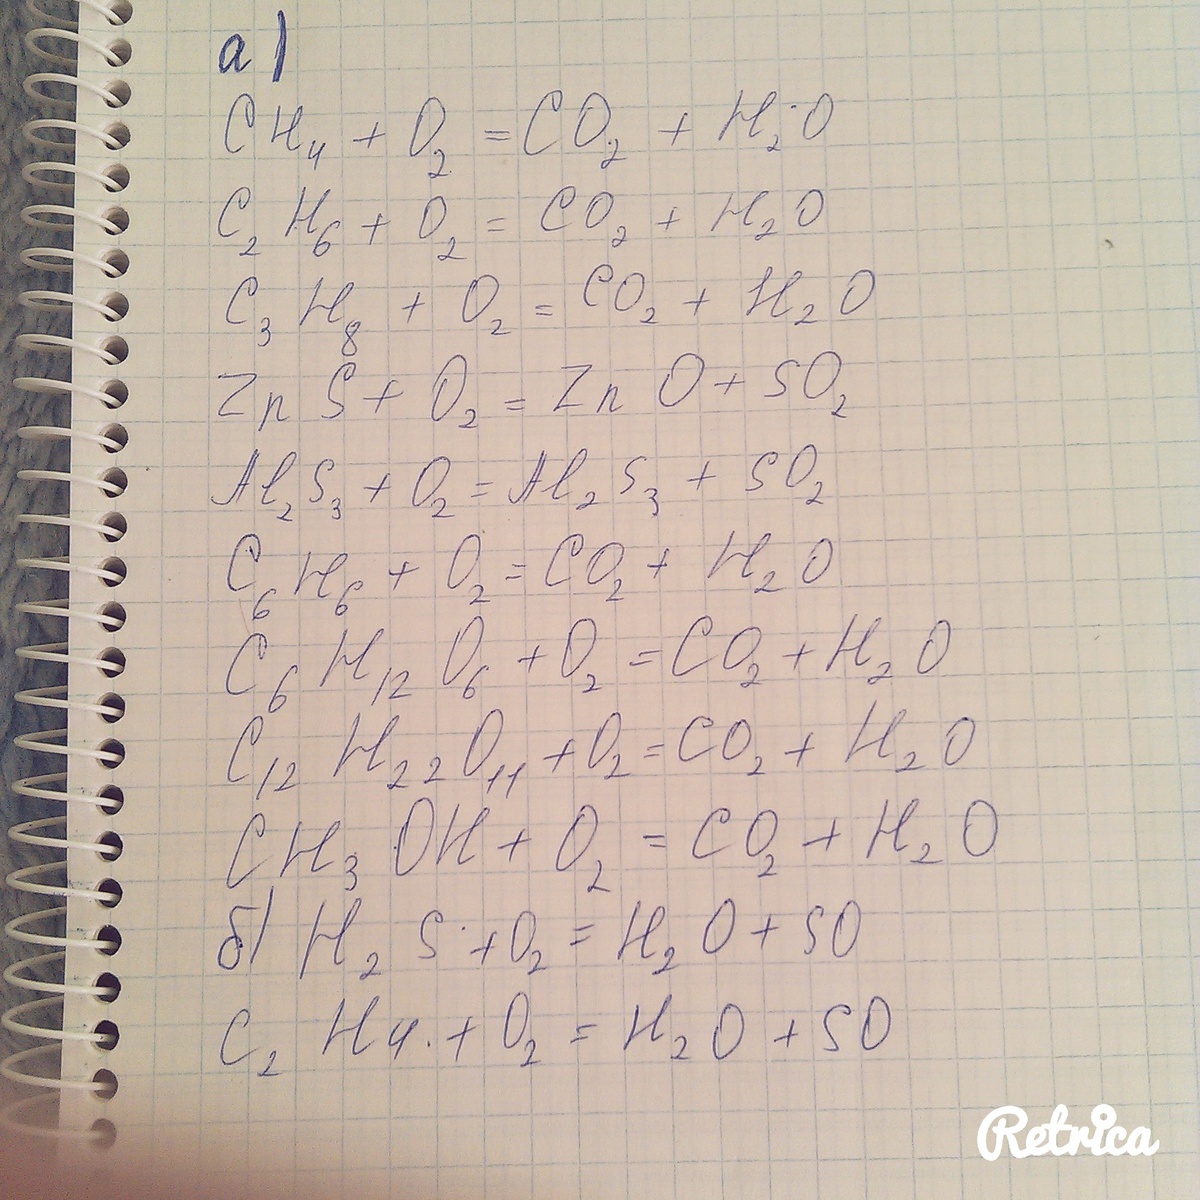 а)
CH₄ + O₂ = CO₂ + H₂O
C₂H₆ + O₂ = CO₂ + H₂O
C₃H₈ + O₂ = CO₂ + H₂O
ZnS + O₂ = ZnO + SO₂
Al₂S₃ + O₂ = Al₂S₃ + SO₂
C₆H₆ + O₂ = CO₂ + H₂O
C₆H₁₂O₆ + O₂ = CO₂ + H₂O
C₁₂H₂₂O₁₁ + O₂ = CO₂ + H₂O
CH₃OH + O₂ = CO₂ + H₂O
б) H₂S + O₂ = H₂O + SO
C₂H₄ + O₂ = H₂O + SO
Retrica